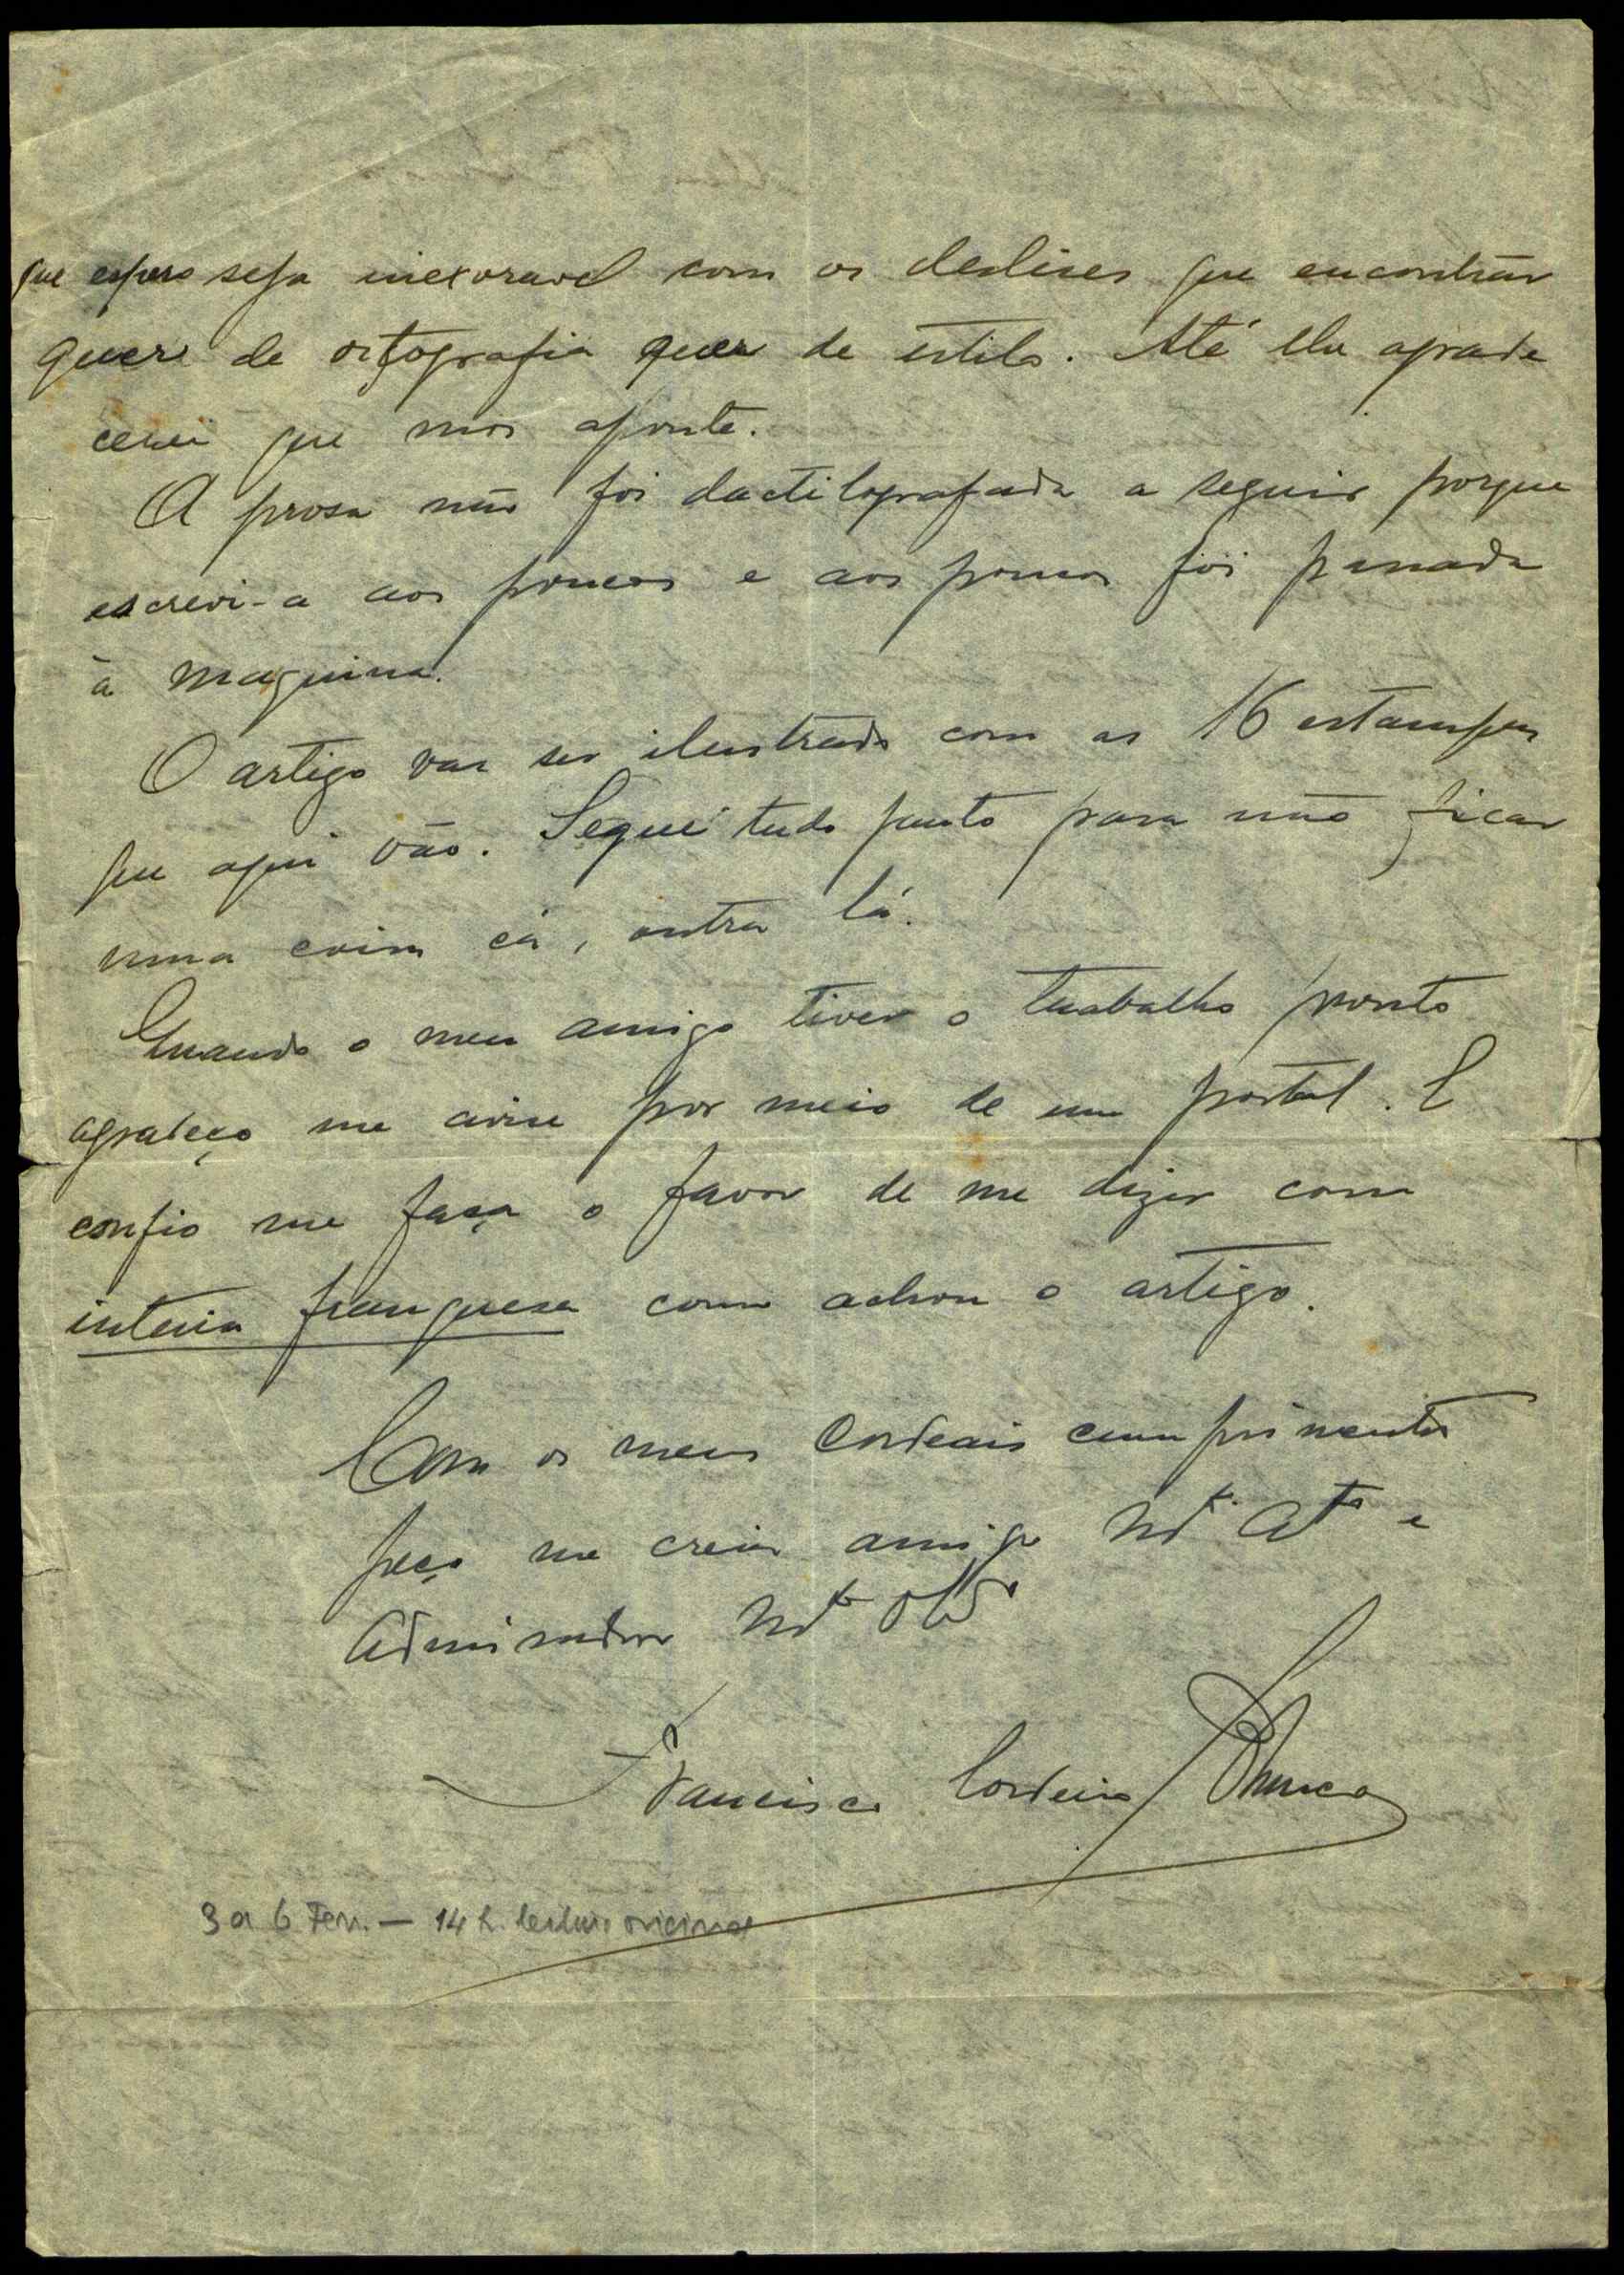 que espero seja inexoravel com os deslises que encontrar
quer de ortografia quer de estilo. Até lhe agrade
cerei que mos aponte.
A prosa não foi dactilografada a seguir porque
escrevi-a aos poucos e aos poucos foi passada
à maquina.
O artigo vai ser ilustrado com as 16 estampas
que aqui vão. Segue tudo junto para não ficar
uma coisa cá, outra lá.
Quando o meu amigo tiver o trabalho pronto
agradeço me avise por meio de um postal. E
confio me faça o favor de me dizer com
inteira franqueza como achou o artigo.
Com os meus cordeais cumprimentos
peço me creia amigo Mt. Atº e
admirador Mt Obº
Francisco Cordeiro Blanco
3 a 6 Fev. — 14 h. leitura original